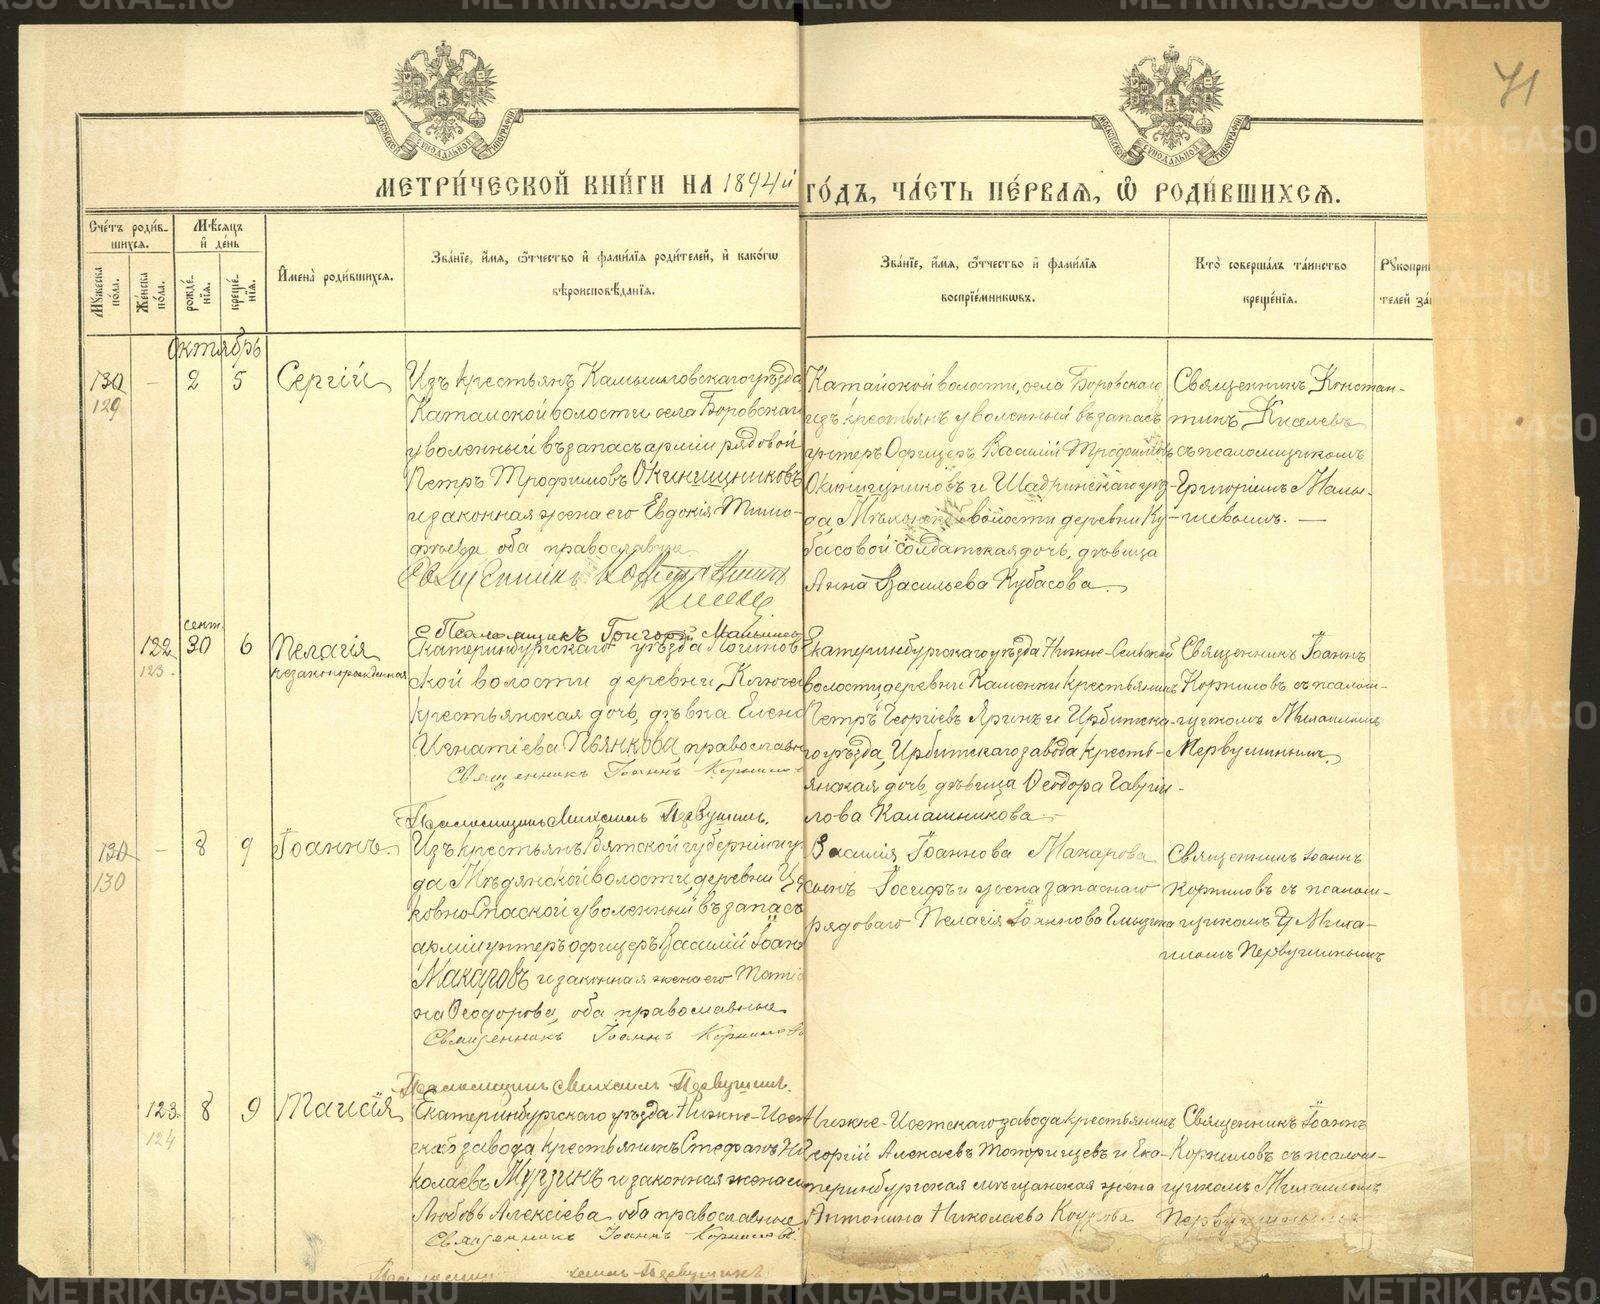 71
МЕТРИЧЕСКОЙ КНИГИ НА 1894й ГОДЪ, ЧАСТЬ ПЕРВАЯ, Ѡ РОДИВШИХСЯ.
Счетъ родившихся.
Мужеска пола.
Женска пола.
Мѣсяцъ и день
рожденїя.
крещенїя.
Имена родившихся.
Званїе, имя, ѻтчество и фамилїя родителей, и какогѡ
вѣроисповѣданїя.
Званїе, имя, ѻтчество и фамилїя
воспрїемникѡвъ.
Кто совершалъ таинство
крещенїя.
Рукопри
телей за
Октябрь
130
129
–
2
5
Сергій
Изъ крестьянъ Камышловскаго уѣзда
Катайской волости села Боровскаго
уволенный въ запасъ арміи рядовой
Петръ Трофимовъ Окинищниковъ
и законная жена его Евдокія Тимо-
фѣева оба православные
Священникъ
Псаломщикъ Григорій
Катайской волости, села Боровскаго
изъ крестьянъ уволенный въ запасъ
унтеръ Офицеръ Василій Трофимовъ
Окинищниковъ и Шадринскаго уѣз-
да, волости деревни Ку-
басовой солдатская дочь, дѣвица
Анна Васильева Кубасова.
Священникъ Констан-
тинъ Киселевъ
съ псаломщикомъ
Григоріемъ Малы-
шевымъ. —
сент.
122
123.
30
6
Пелагія
незаконорожденная
Екатеринбургскаго уѣзда Логинов-
ской волости деревни Ключей
крестьянская дочь, дѣвка Елена
Игнатіева Пьянкова православн
Священникъ Іоаннъ Корнилов
Псаломщикъ Михаилъ Первушинъ.
Екатеринбургскаго уѣзда Нижне-Сельской
волости, деревни Каменки крестьянинъ
Петръ Георгіевъ Яринъ и Ирбитска-
го уѣзда, Ирбитскаго завода кресть-
янская дочь, дѣвица Ѳеодора Гаврі-
лова Калашникова
Священникъ Іоаннъ
Корниловъ съ псалом-
щикомъ Михаиломъ
Первушинымъ.
130
130
–
8
9
Іоаннъ.
Изъ крестьянъ Вятской губерніи
да Мѣдянской волости, деревни Цер
ковно Спаской уволенный въ запасъ
арміи унтеръ офицеръ Василій Іоан
Макаровъ и законная жена его Татія
на Ѳеодорова, оба православные
Священникъ Іоаннъ Корнилов
Псаломщикъ Михаилъ Первушинъ.
Василія Іоаннова Макарова
сынъ Іосифъ и жена запаснаго
рядоваго Пелагія Іоаннова
Священникъ Іоаннъ
Корниловъ съ псалом-
щикомъ Миха-
иломъ Первушинымъ
123.
124
8
9
Таисія
Екатеринбургскаго уѣзда Нижне-Исет
скаго завода крестьянинъ Стефанъ Ни
колаевъ Мурзинъ и законная жена его
Любовь Алексіева оба православные
Священникъ Іоаннъ Корниловъ.
Первушинъ
Нижне-Исетскаго завода крестьянинъ
Георгій Алексѣевъ Топорищевъ и Ека-
теринбургская мѣщанская жена
Антонина Николаева
Священникъ Іоаннъ
Корниловъ съ псалом-
щикомъ Михаиломъ
Первушинымъ
METRIKI.GASO-URAL.RU